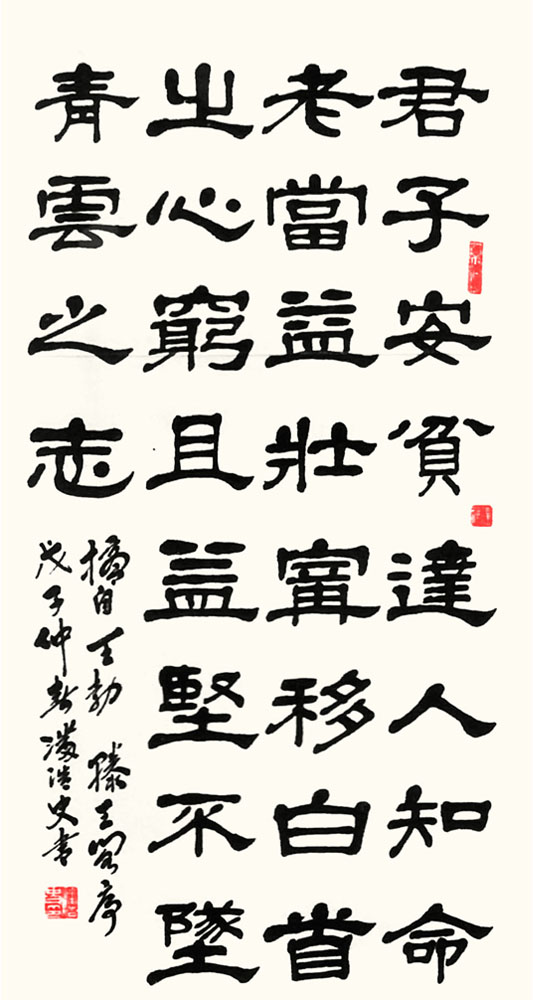 君子安貧達人知命
老當益壯寧移白首
之心窮且益堅不墜
青雲之志
摘自王勃滕王閣序
戊子仲 史書